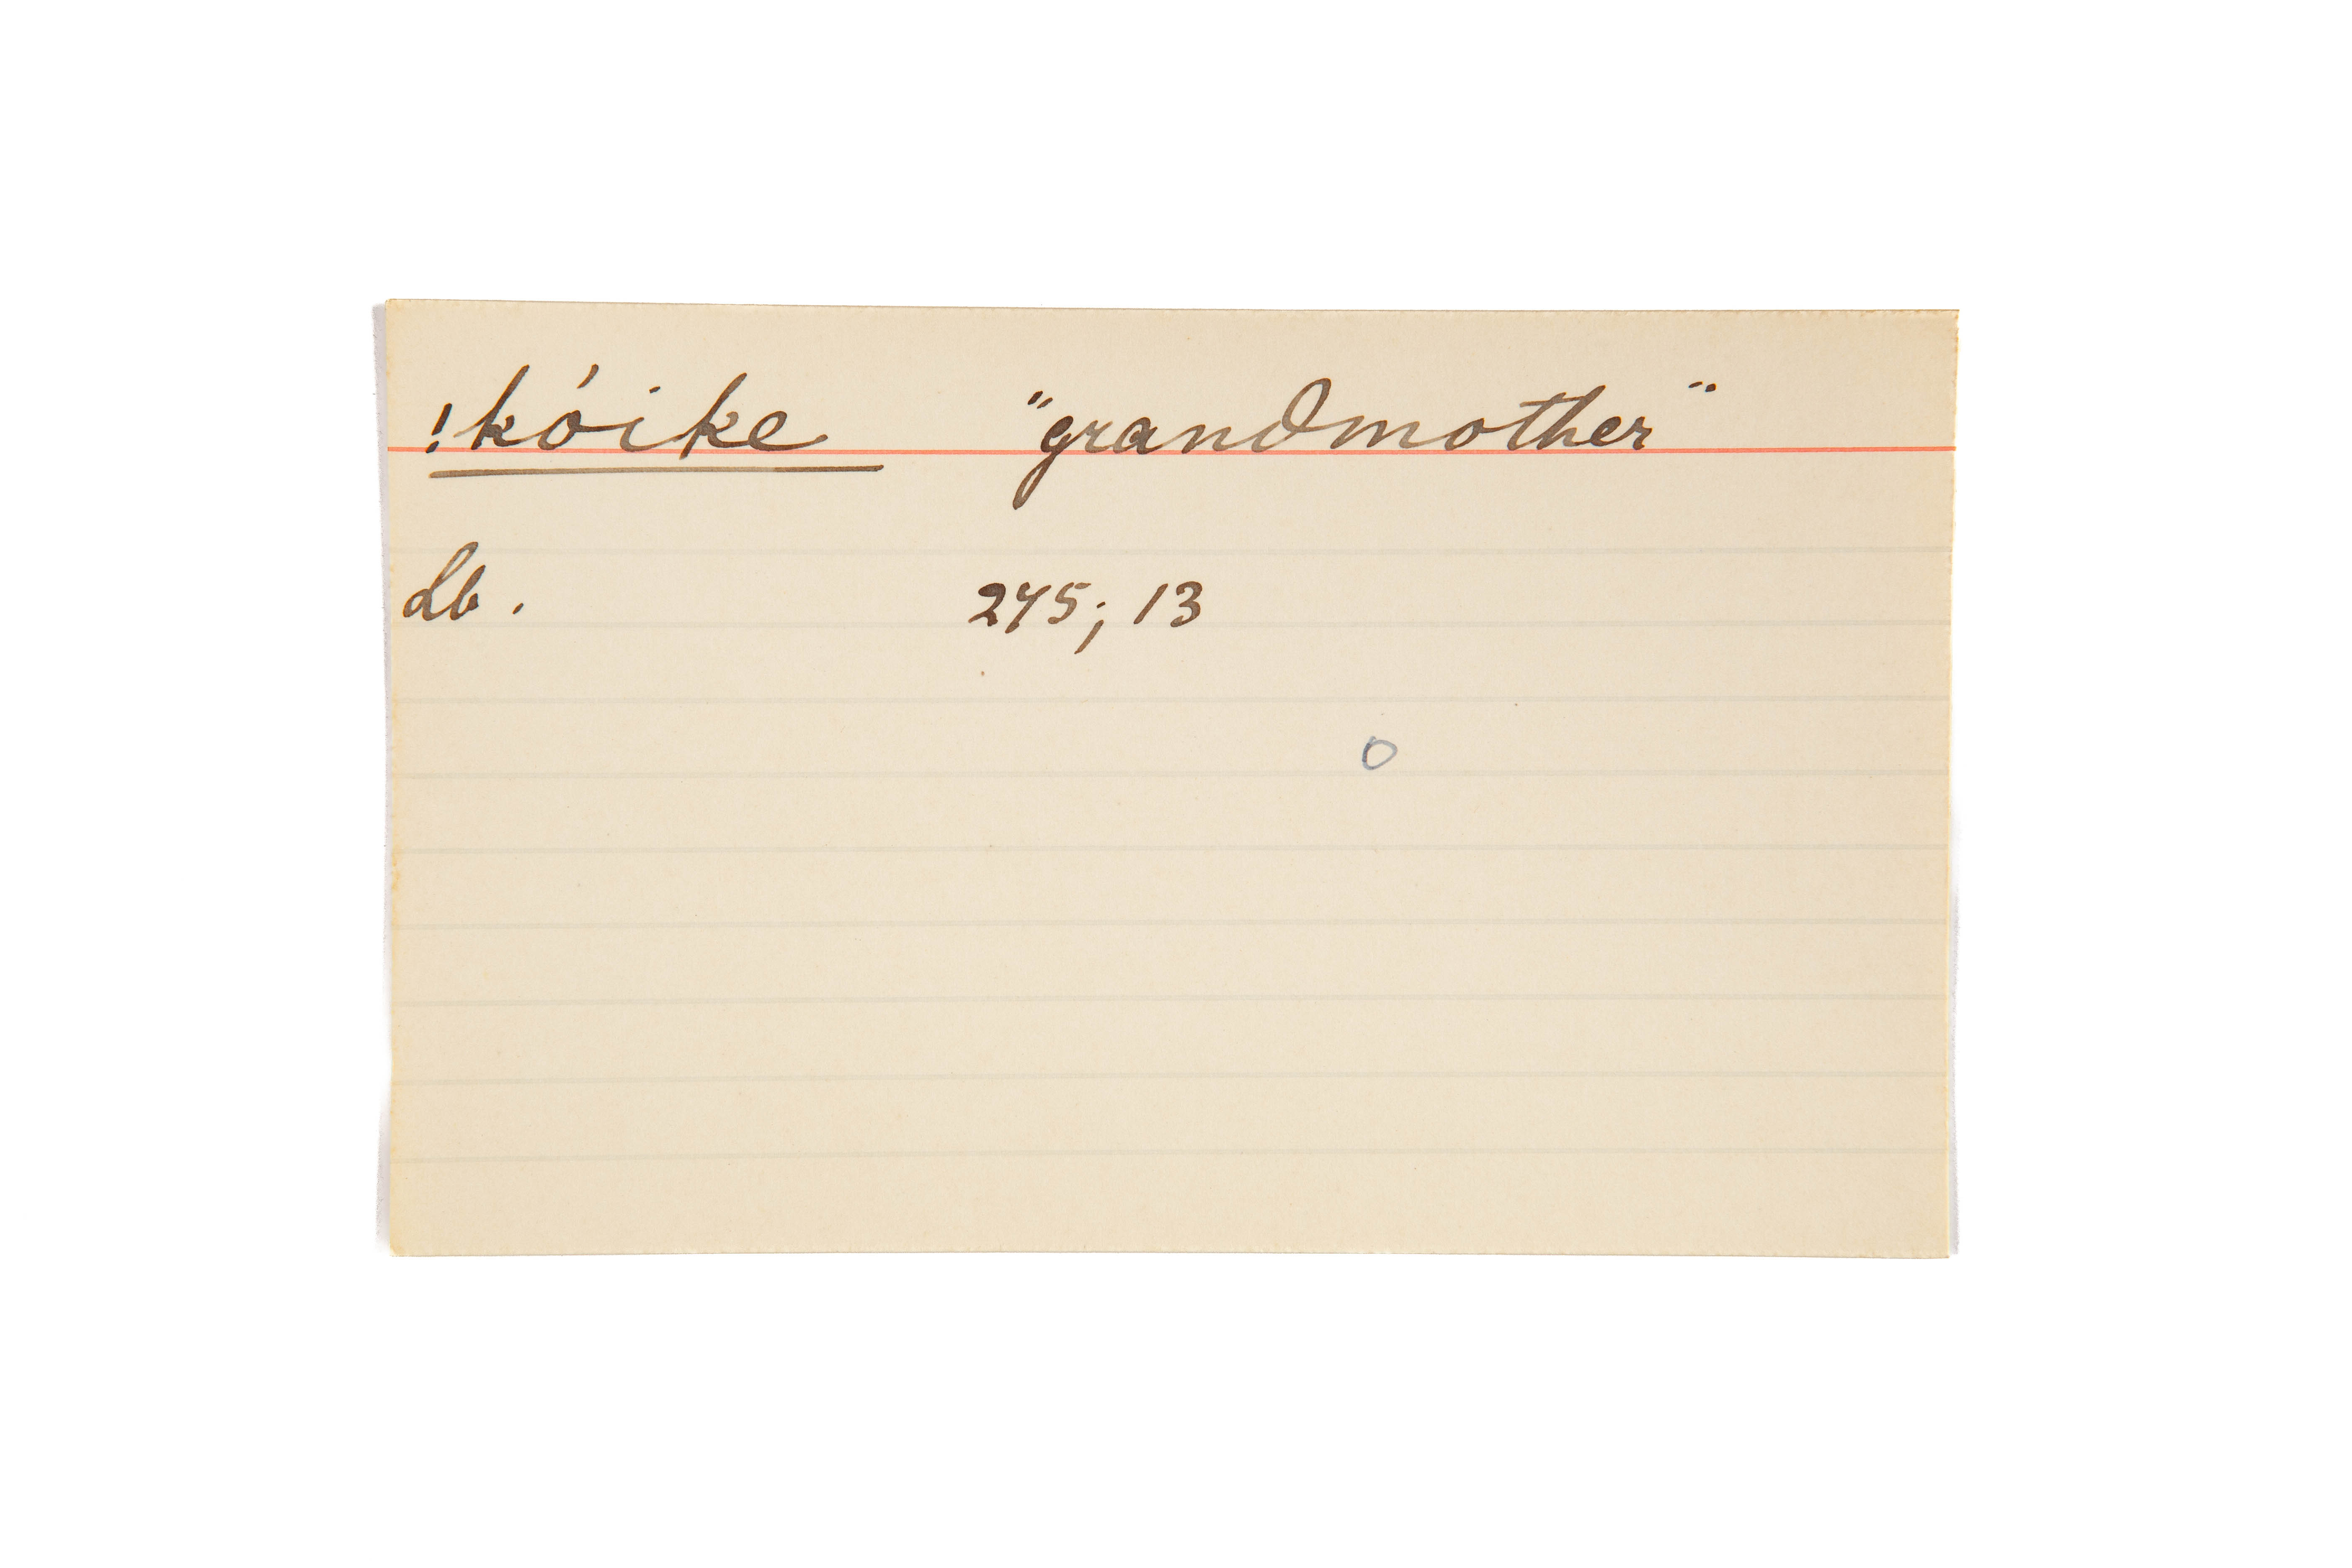 !kóike "grandmother"
Lb. 275; 13
o